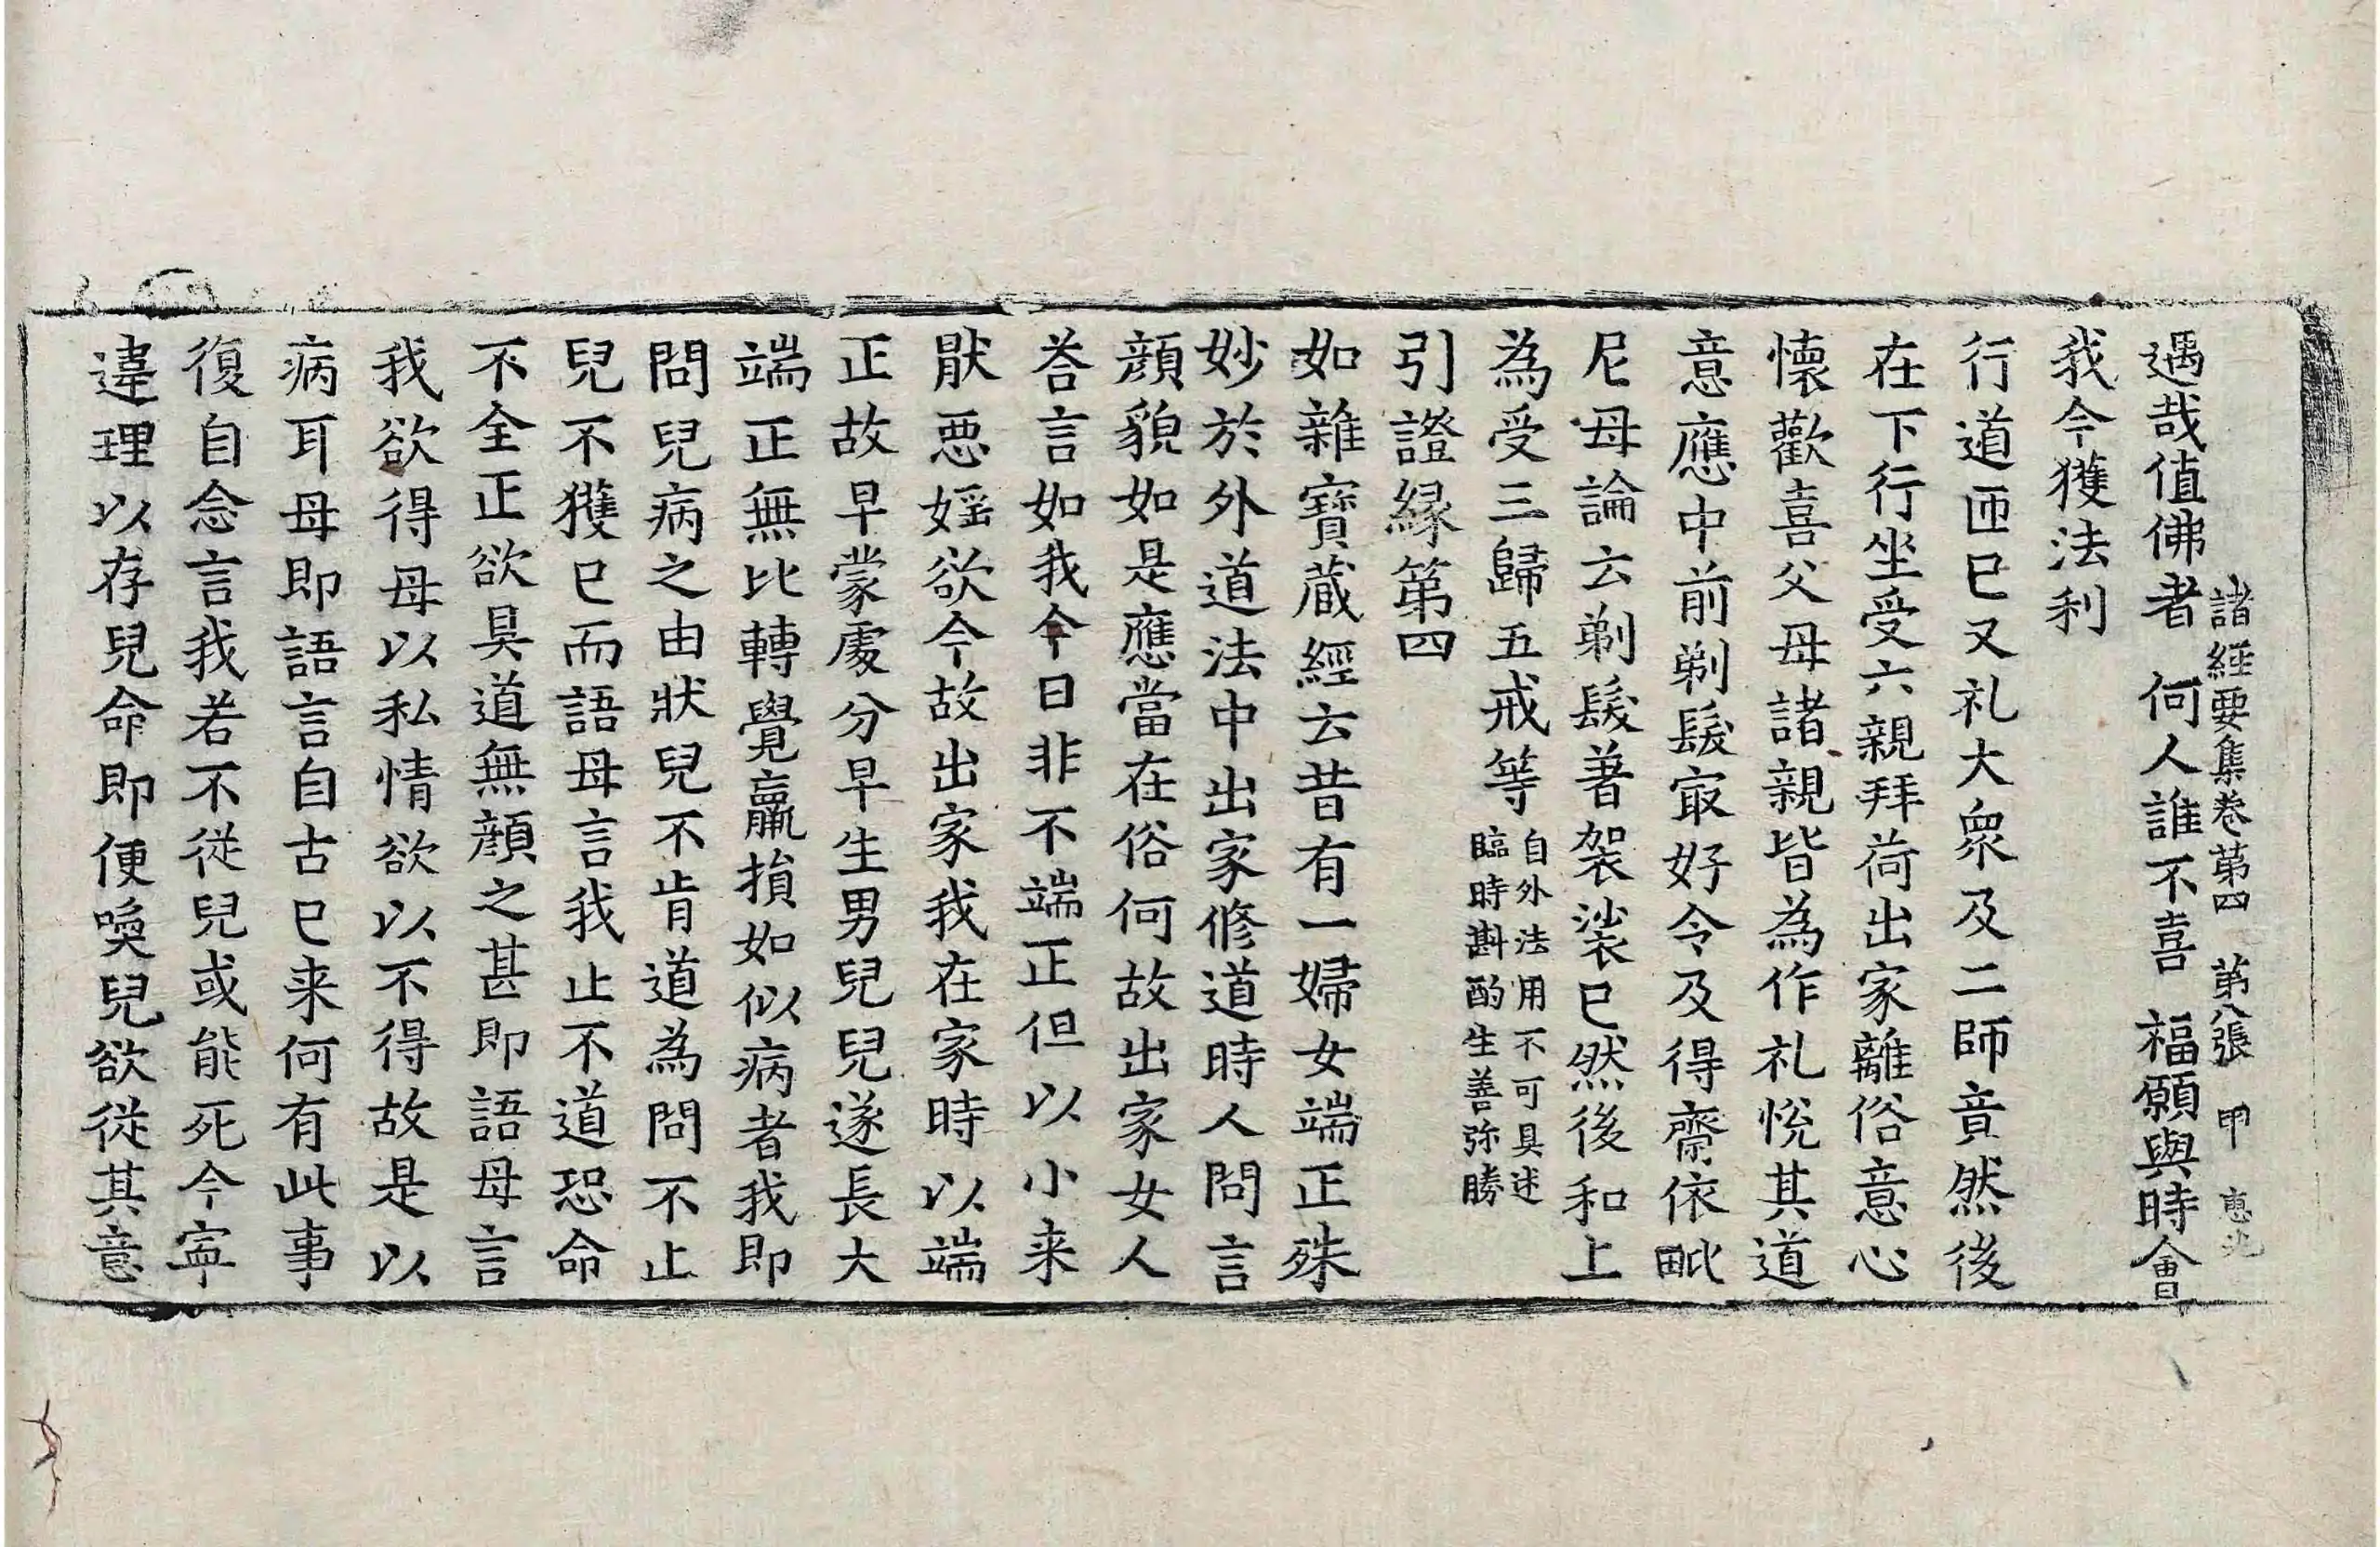 諸經要集卷第四 第八張 甲
遇哉值佛者 何人誰不喜 福願與時會
我今獲法利
行道匝巳又礼大衆及二師竟然後
在下行坐受六親拜荷出家離俗意心
懐歡喜父母諸親皆為作礼悅其道
意應中前剃髮㝡好令及得齋依毗
尼母論云剃髮著袈裟巳然後和上
為受三歸五戒等自外法用不可具述
臨時斟酌生善弥勝
引證縁第四
如雜寶蔵經云昔有一婦女端正殊
妙於外道法中出家修道時人問言
顔貌如是應當在俗何故出家女人
荅言如我今日非不端正但以小来
猒惡婬欲今故出家我在家時以端
正故早蒙處分早生男兒兒遂長大
端正無比轉覺羸損如似病者我即
問兒病之由狀兒不肯道為問不止
兒不獲巳而語母言我止不道恐命
不全正欲具道無顔之甚即語母言
我欲得母以私情欲以不得故是以
病耳母即語言自古巳来何有此事
復自念言我若不従兒或能死今寧
違理以存兒命即便喚兒欲從其意